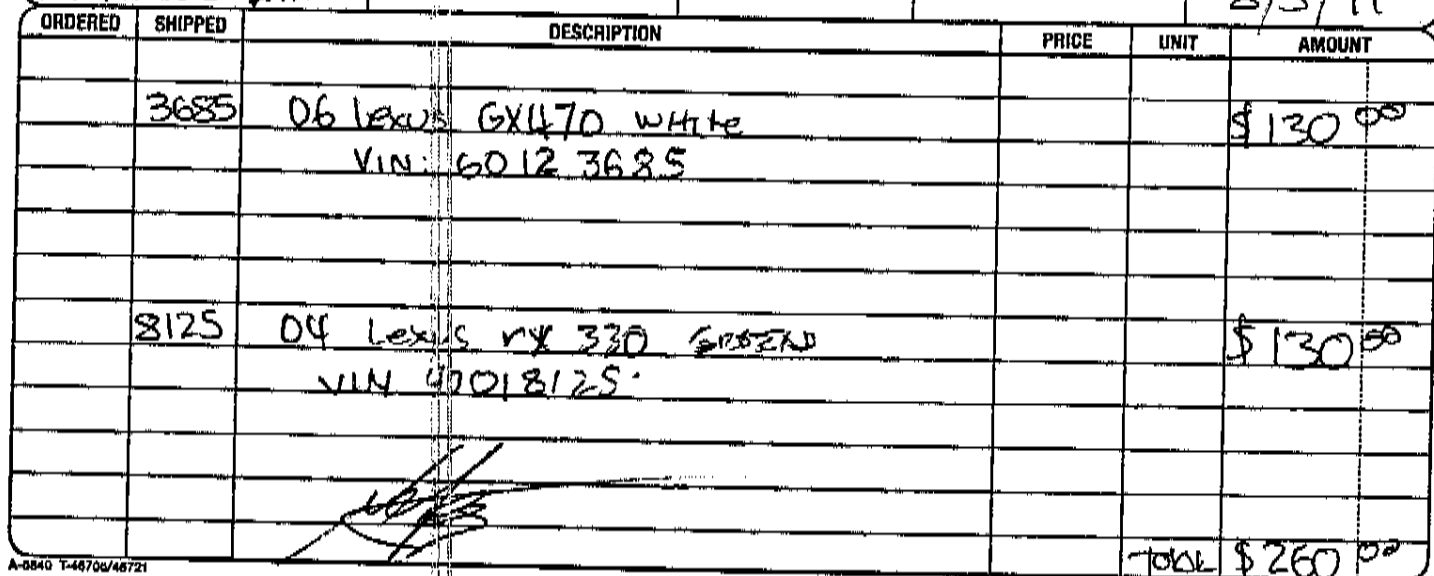 ORDERED SHIPPED DESCRIPTION PRICE UNIT AMOUNT
3685 06 lexus GX470 WHIte $130 00
VIN: 6012 3685
8125 04 Lexus rx 330 GREEN $130 00
VIN 018125
total $260 00
A-5840 T-46700/46721